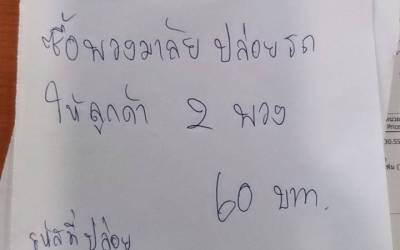 ซื้อพวงมาลัย ปล่อยรถ
ให้ลูกค้า 2 พวง
60 บาท.
รหัสที่ปล่อย